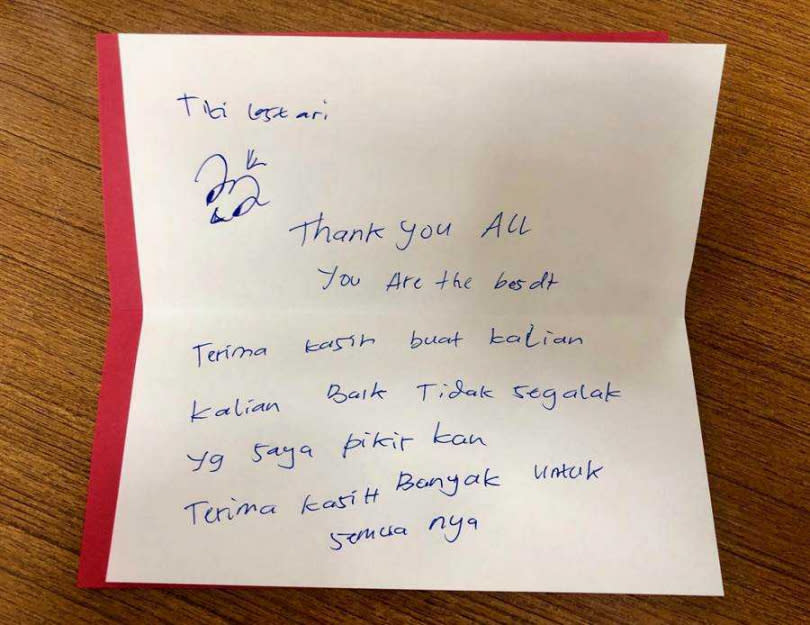 Titi Lestari
Thank you All
You Are the besdt
Terima kasih buat kalian
kalian Baik Tidak segalak
yg saya pikir kan
Terima kasiH Banyak untuk
semua nya